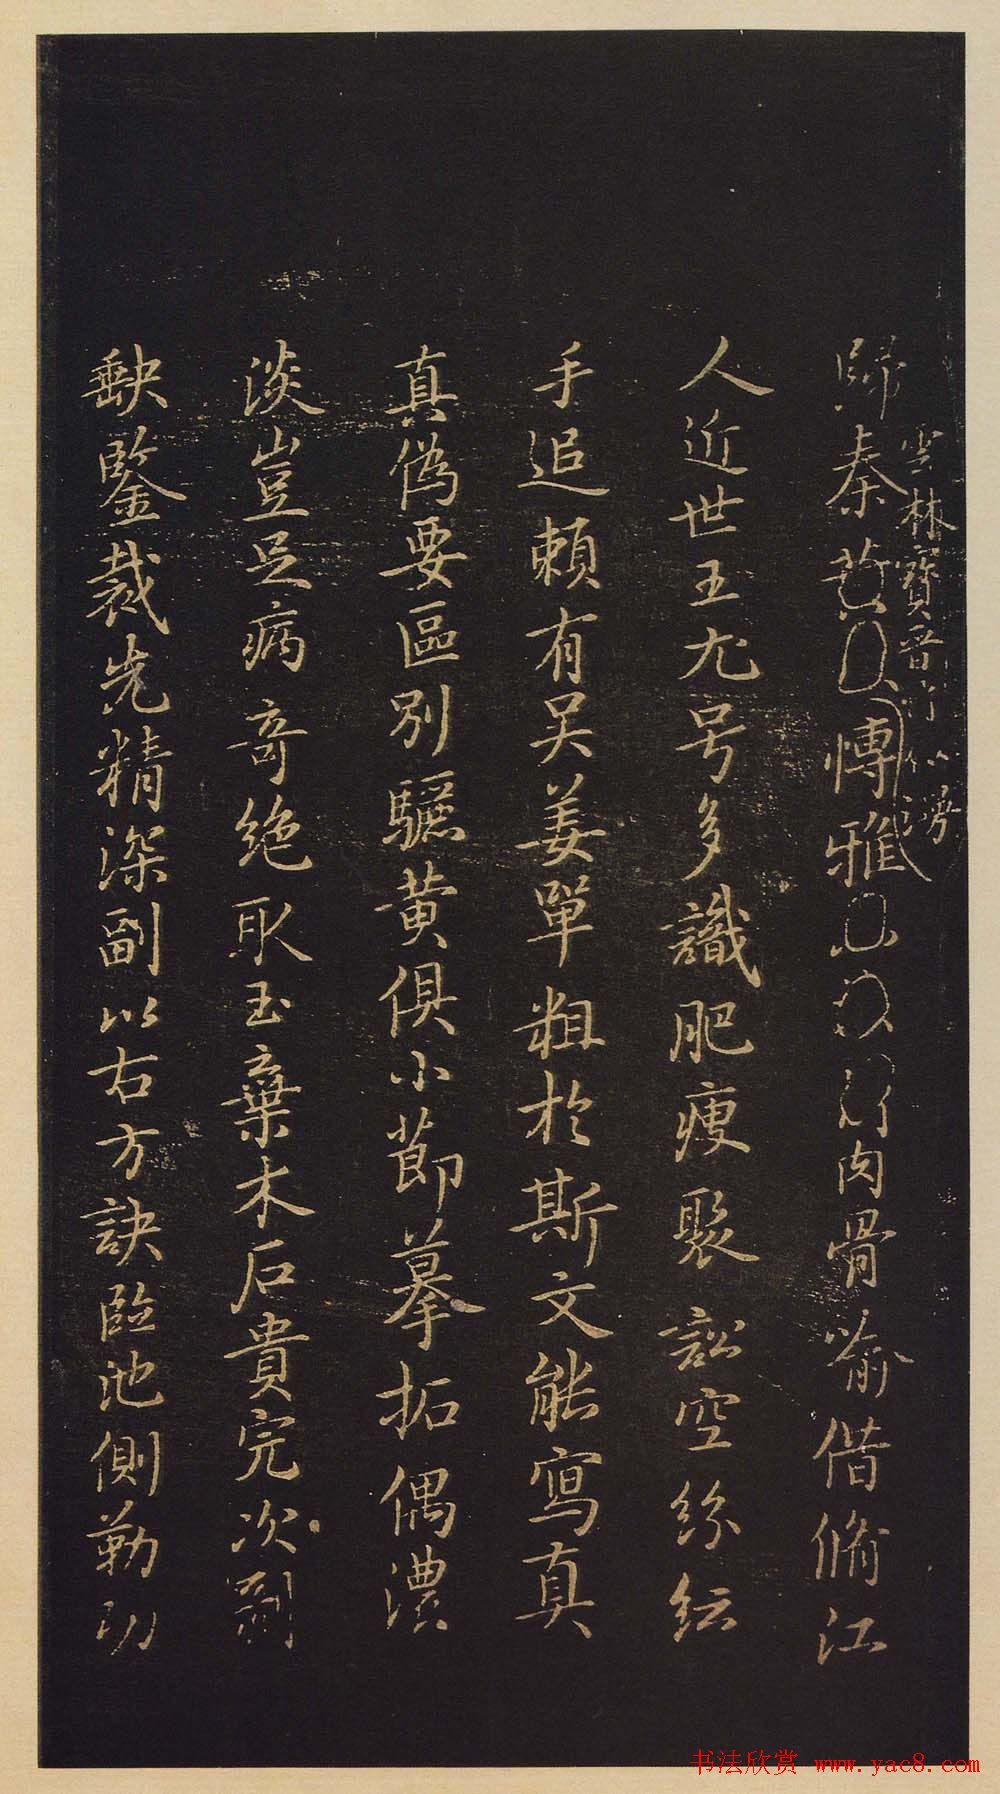 歸秦黃博雅肉骨喻借脩江
雲林寶晉
人近世王尤号多識肥瘦聚訟空紛紜
手追賴有吴姜單粗於斯文能寫真
真偽要區別驪黃俱小節摹拓偶濃
淡豈足病奇絶取玉棄木石貴完次剜
缺鑒裁先精深副以右方訣臨池側勒功
书法欣赏 www.yac8.com